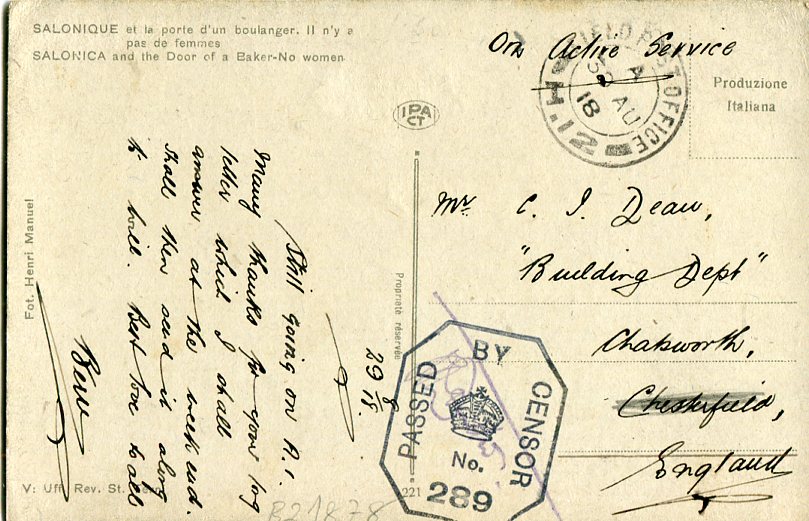 SALONIQUE et la porte d'un boulanger. Il n'y a
pas de femmes
SALONICA and the Door of a Baker-No women
On Active Service
FIELD POST OFFICE
A
30 AU
18
Produzione
Italiana
IPA
CT
Fot. Henri Manuel
Proprieté réservée
29/8/18.
Still going on A.1.
Many thanks for your long
letter which I shall
answer at the week end.
Shall then send it along
to Will. Best love to all
Bew
Mr C. J. Dean,
"Building Dept"
Chatsworth,
Chesterfield,
England
PASSED BY CENSOR
No.
289
V: Uff. Rev. St.
221
B21878